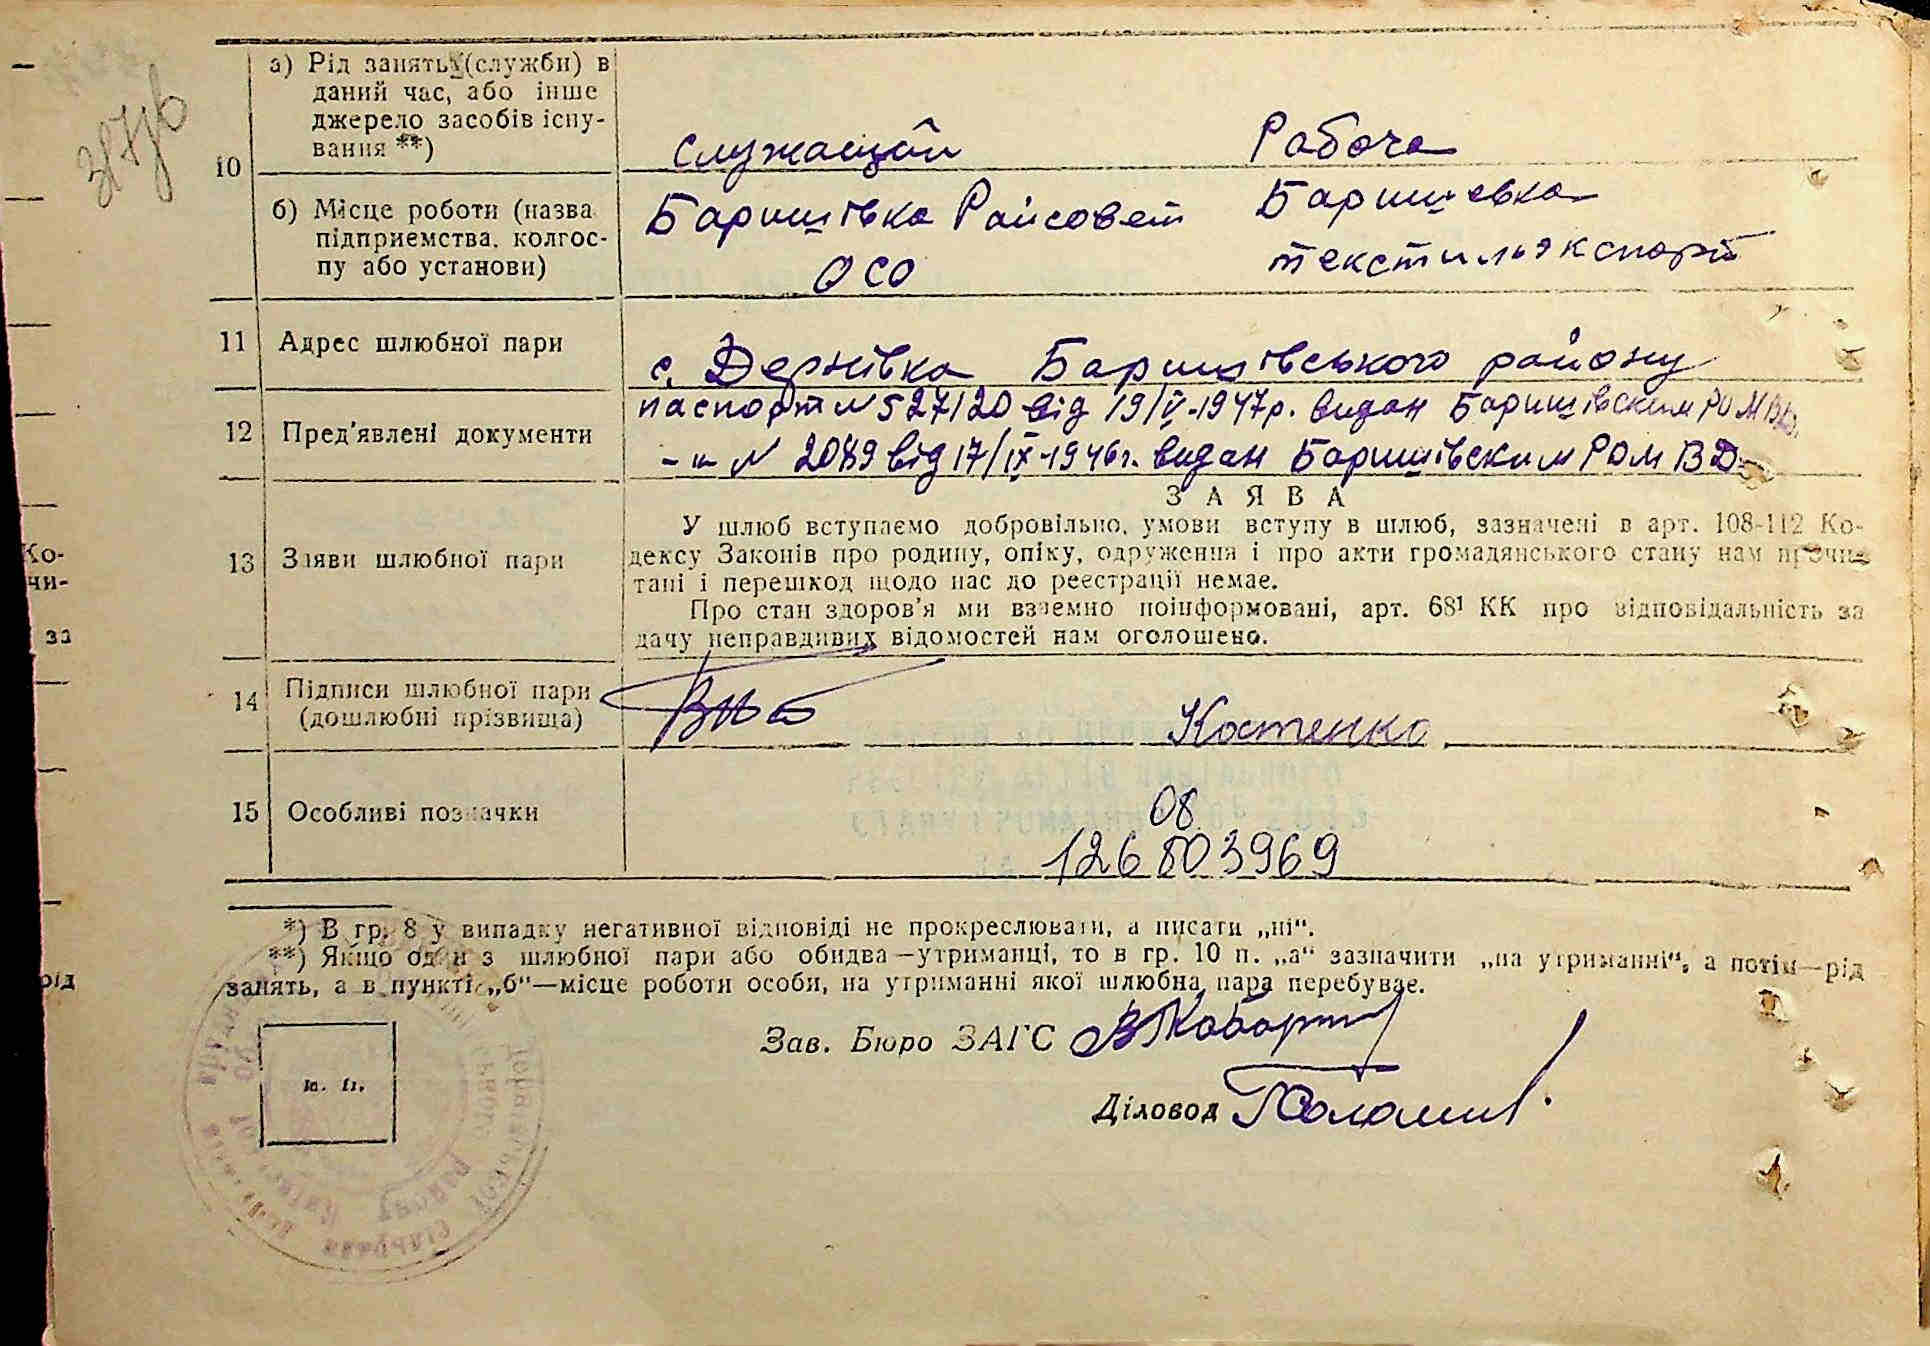 а) Рід занять (служби) в
даний час, або інше
джерело засобів існу-
вання **)
10
служащий
Рабоча
б) Місце роботи (назва
підприємства, колгос-
пу або установи)
Баришівка Райсовет
ОСО
Баришевка
текстильэкспорт
11 Адрес шлюбної пари
с. Дернівка Баришівського району
12 Пред'явлені документи
паспорт № 527120 від 19/V-1947р. видан Баришівским РОМВД.
-"- № 2089 від 17/IX-1946г. видан Баришівским РОМ ВД
13 Заяви шлюбної пари
ЗАЯВА
У шлюб вступаємо добровільно, умови вступу в шлюб, зазначені в арт. 108-112 Ко-
дексу Законів про родину, опіку, одруження і про акти громадянського стану нам прочи-
тані і перешкод щодо нас до реєстрації немає.
Про стан здоров'я ми взаємно поінформовані, арт. 68¹ КК про відповідальність за
дачу неправдивих відомостей нам оголошено.
14 Підписи шлюбної пари
(дошлюбні прізвища)
Костенко
15 Особливі позначки
08
126803969
*) В гр. 8 у випадку негативної відповіді не прокреслювати, а писати „ні“.
**) Якщо один з шлюбної пари або обидва—утриманці, то в гр. 10 п. „а“ зазначити „на утриманні“, а потім—рід
занять, а в пункті „б“—місце роботи особи, на утриманні якої шлюбна пара перебуває.
Зав. Бюро ЗАГС
Діловод
м. п.
Ко-
чи-
за
рід